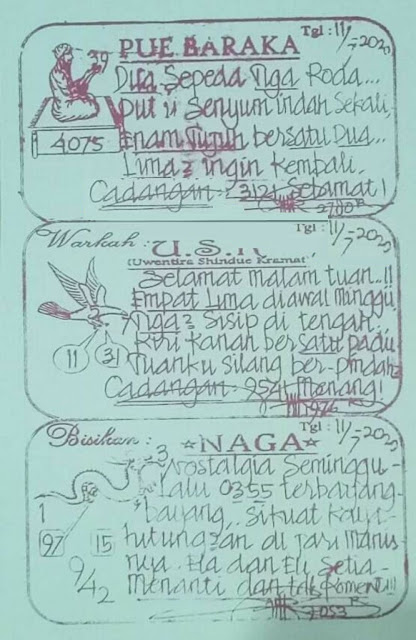 Tgl : 11/7-2020
PUE BARAKA
39
Dua Sepeda Tiga Roda...
Put ii Senyum indah Sekali,
4075
Enam Tujuh bersatu Dua..
Lima² ingin Kembali.
Cadangan : 3121 Selamat !
Tgl : 11/7-2020
Warkah :
(Uwentira Shindue Kramat)
Selamat malam tuan..!!
Empat Lima diawal minggu
Tiga² Sisip di tengah.
11
31
Kiri Kanan bersatu padu
Tuanku silang ber-pindah²
Cadangan : 9521 Menang !
Tgl : 11/7-2020
Bisikan :
NAGA
3
Nostalgia Seminggu -
Lalu 0355 terbayang-
1
bayang,. Sikuat Kaya
97
15
hitungan di jari manis
942
nya. Ha dan Eli Setia -
Menanti dan tak Koment!!!